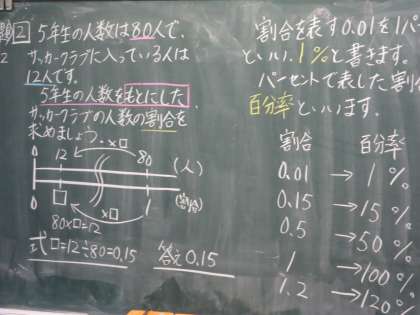 題2 5年生の人数は80人で、
サッカークラブに入っている人は
12人です。
5年生の人数をもとにした
サッカークラブの人数の割合を
求めましょう。
×□
0 12 80 (人)
0 □ 1 (割合)
×□
80×□=12
式 □=12÷80=0.15 答え 0.15
割合を表す0.01を1パー
といい、1%と書きます。
パーセントで表した割合
百分率といいます。
割合 百分率
0.01 → 1%
0.15 → 15%
0.5 → 50%
1 → 100%
1.2 → 120%